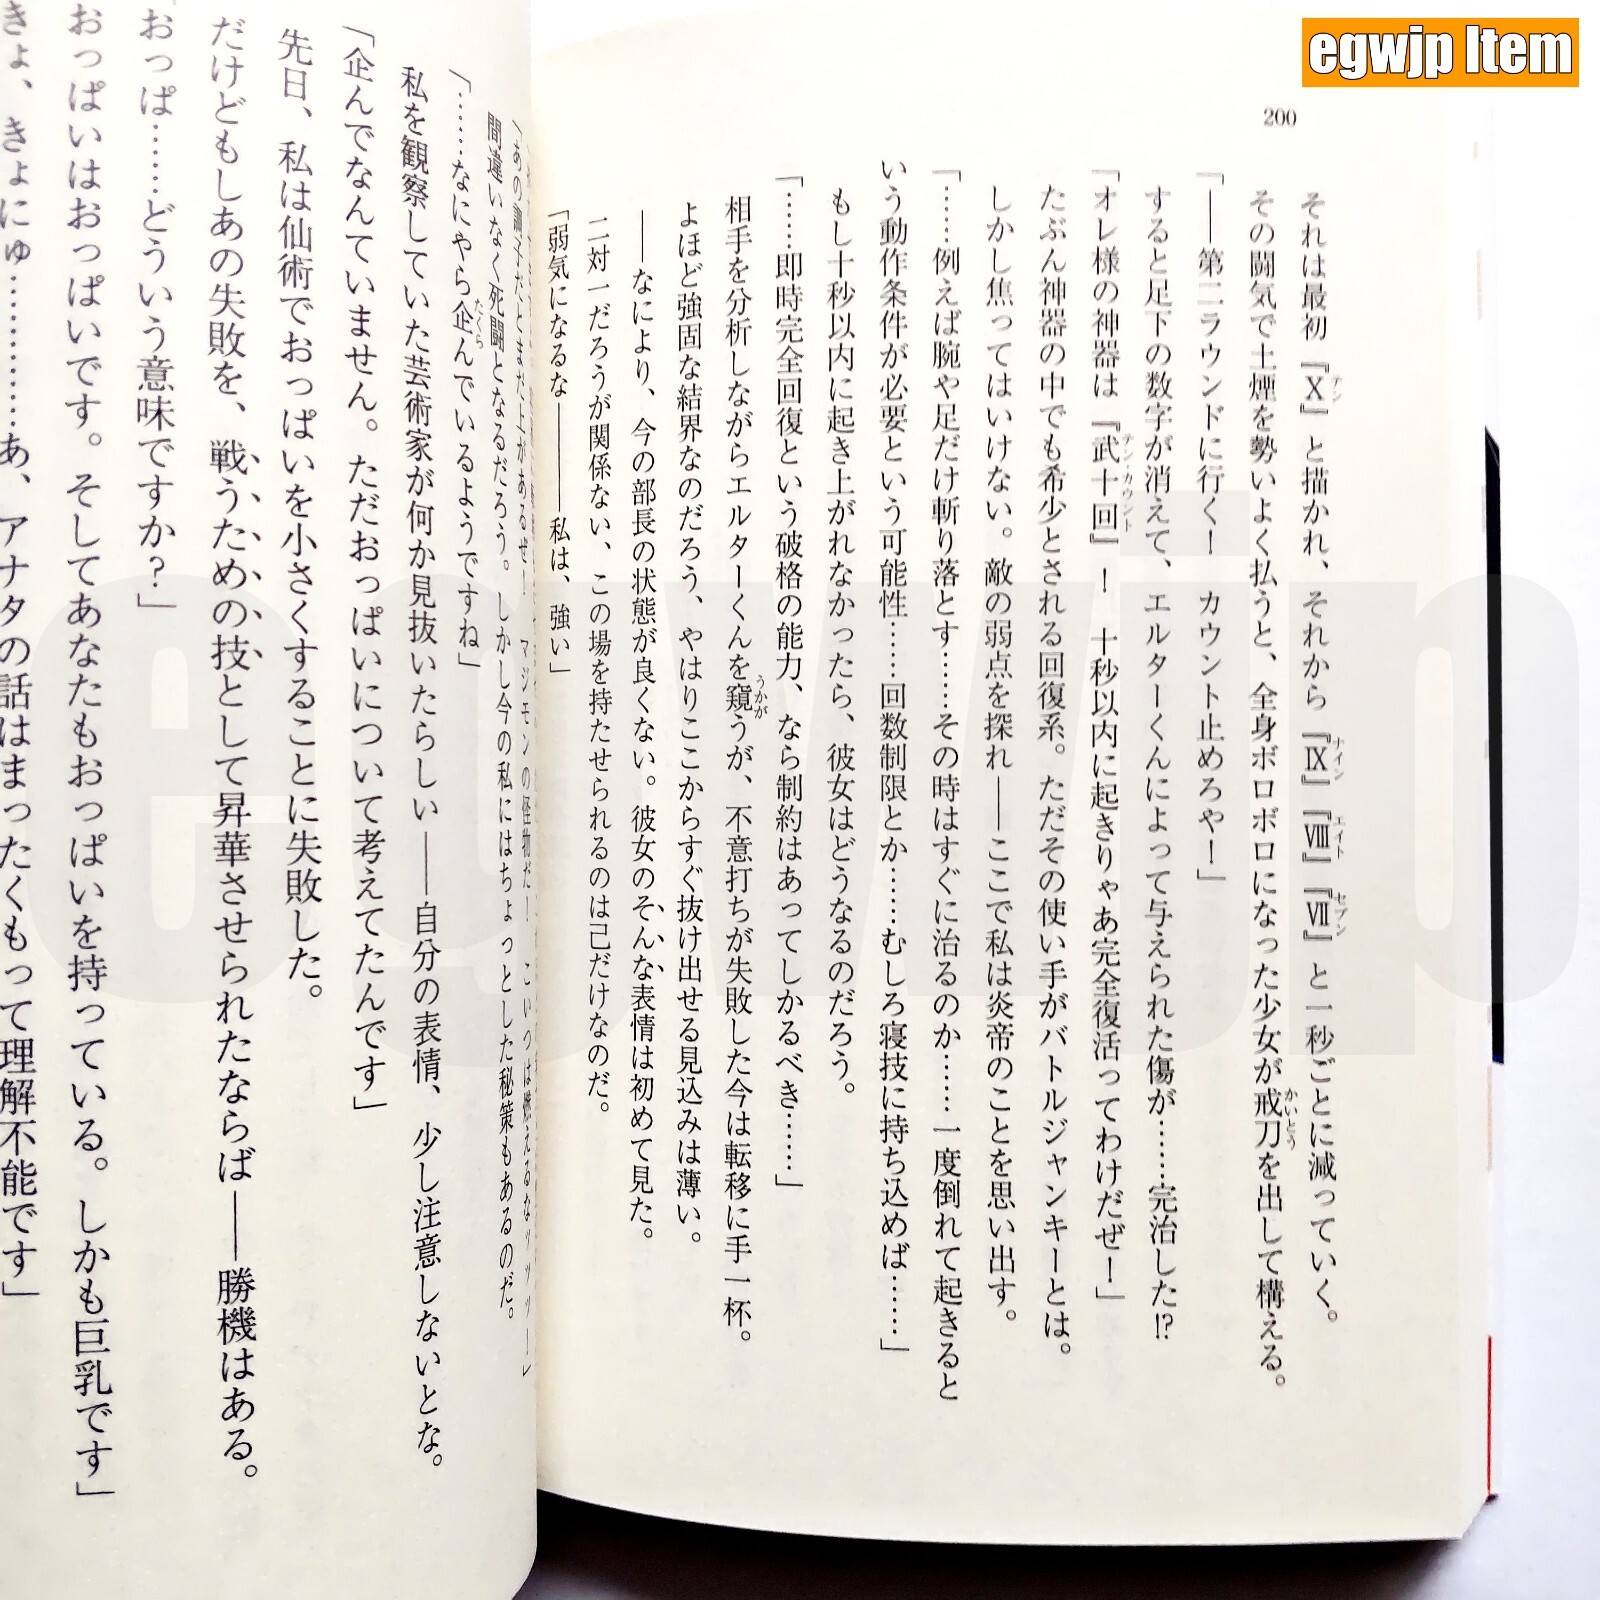 egwjp Item
200
それは最初『Ⅹ』と描かれ、それから『Ⅸ』『Ⅷ』『Ⅶ』と一秒ごとに減っていく。
その闘気で土煙を勢いよく払うと、全身ボロボロになった少女が戒刀を出して構える。
「――第二ラウンドに行く！　カウント止めろや！」
すると足下の数字が消えて、エルターくんによって与えられた傷が……完治した!?
「オレ様の神器は『武十回』！　十秒以内に起きりゃあ完全復活ってわけだぜ！」
たぶん神器の中でも希少とされる回復系。ただその使い手がバトルジャンキーとは。
しかし焦ってはいけない。敵の弱点を探れ――ここで私は炎帝のことを思い出す。
「……例えば腕や足だけ斬り落とす……その時はすぐに治るのか……一度倒れて起きると
いう動作条件が必要という可能性……回数制限とか……むしろ寝技に持ち込めば……」
もし十秒以内に起き上がれなかったら、彼女はどうなるのだろう。
「……即時完全回復という破格の能力、なら制約はあってしかるべき……」
相手を分析しながらエルターくんを窺うが、不意打ちが失敗した今は転移に手一杯。
よほど強固な結界なのだろう、やはりここからすぐ抜け出せる見込みは薄い。
――なにより、今の部長の状態が良くない。彼女のそんな表情は初めて見た。
二対一だろうが関係ない、この場を持たせられるのは己だけなのだ。
「弱気になるな――――私は、強い」
「あの調子だとまだ上があるぜ！　マジモンの怪物だ！　こいつは燃えるなッッッ！」
間違いなく死闘となるだろう。しかし今の私にはちょっとした秘策もあるのだ。
「……なにやら企んでいるようですね」
私を観察していた芸術家が何か見抜いたらしい――自分の表情、少し注意しないとな。
「企んでなんていません。ただおっぱいについて考えてたんです」
先日、私は仙術でおっぱいを小さくすることに失敗した。
だけどもしあの失敗を、戦うための技として昇華させられたならば――勝機はある。
おっぱ……どういう意味ですか？」
おっぱいはおっぱいです。そしてあなたもおっぱいを持っている。しかも巨乳です」
きょ、きょにゅ…………あ、アナタの話はまったくもって理解不能です」